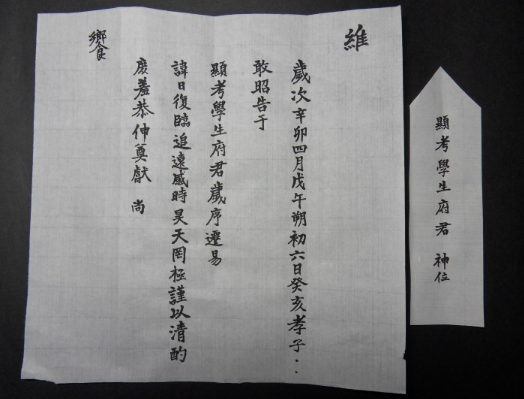 維
歲次辛卯四月戊午朔初六日癸亥孝子··
敢昭告于
顯考學生府君歲序遷易
諱日復臨追遠感時昊天罔極謹以清酌
庶羞恭伸奠獻 尚
饗
顯考學生府君 神位